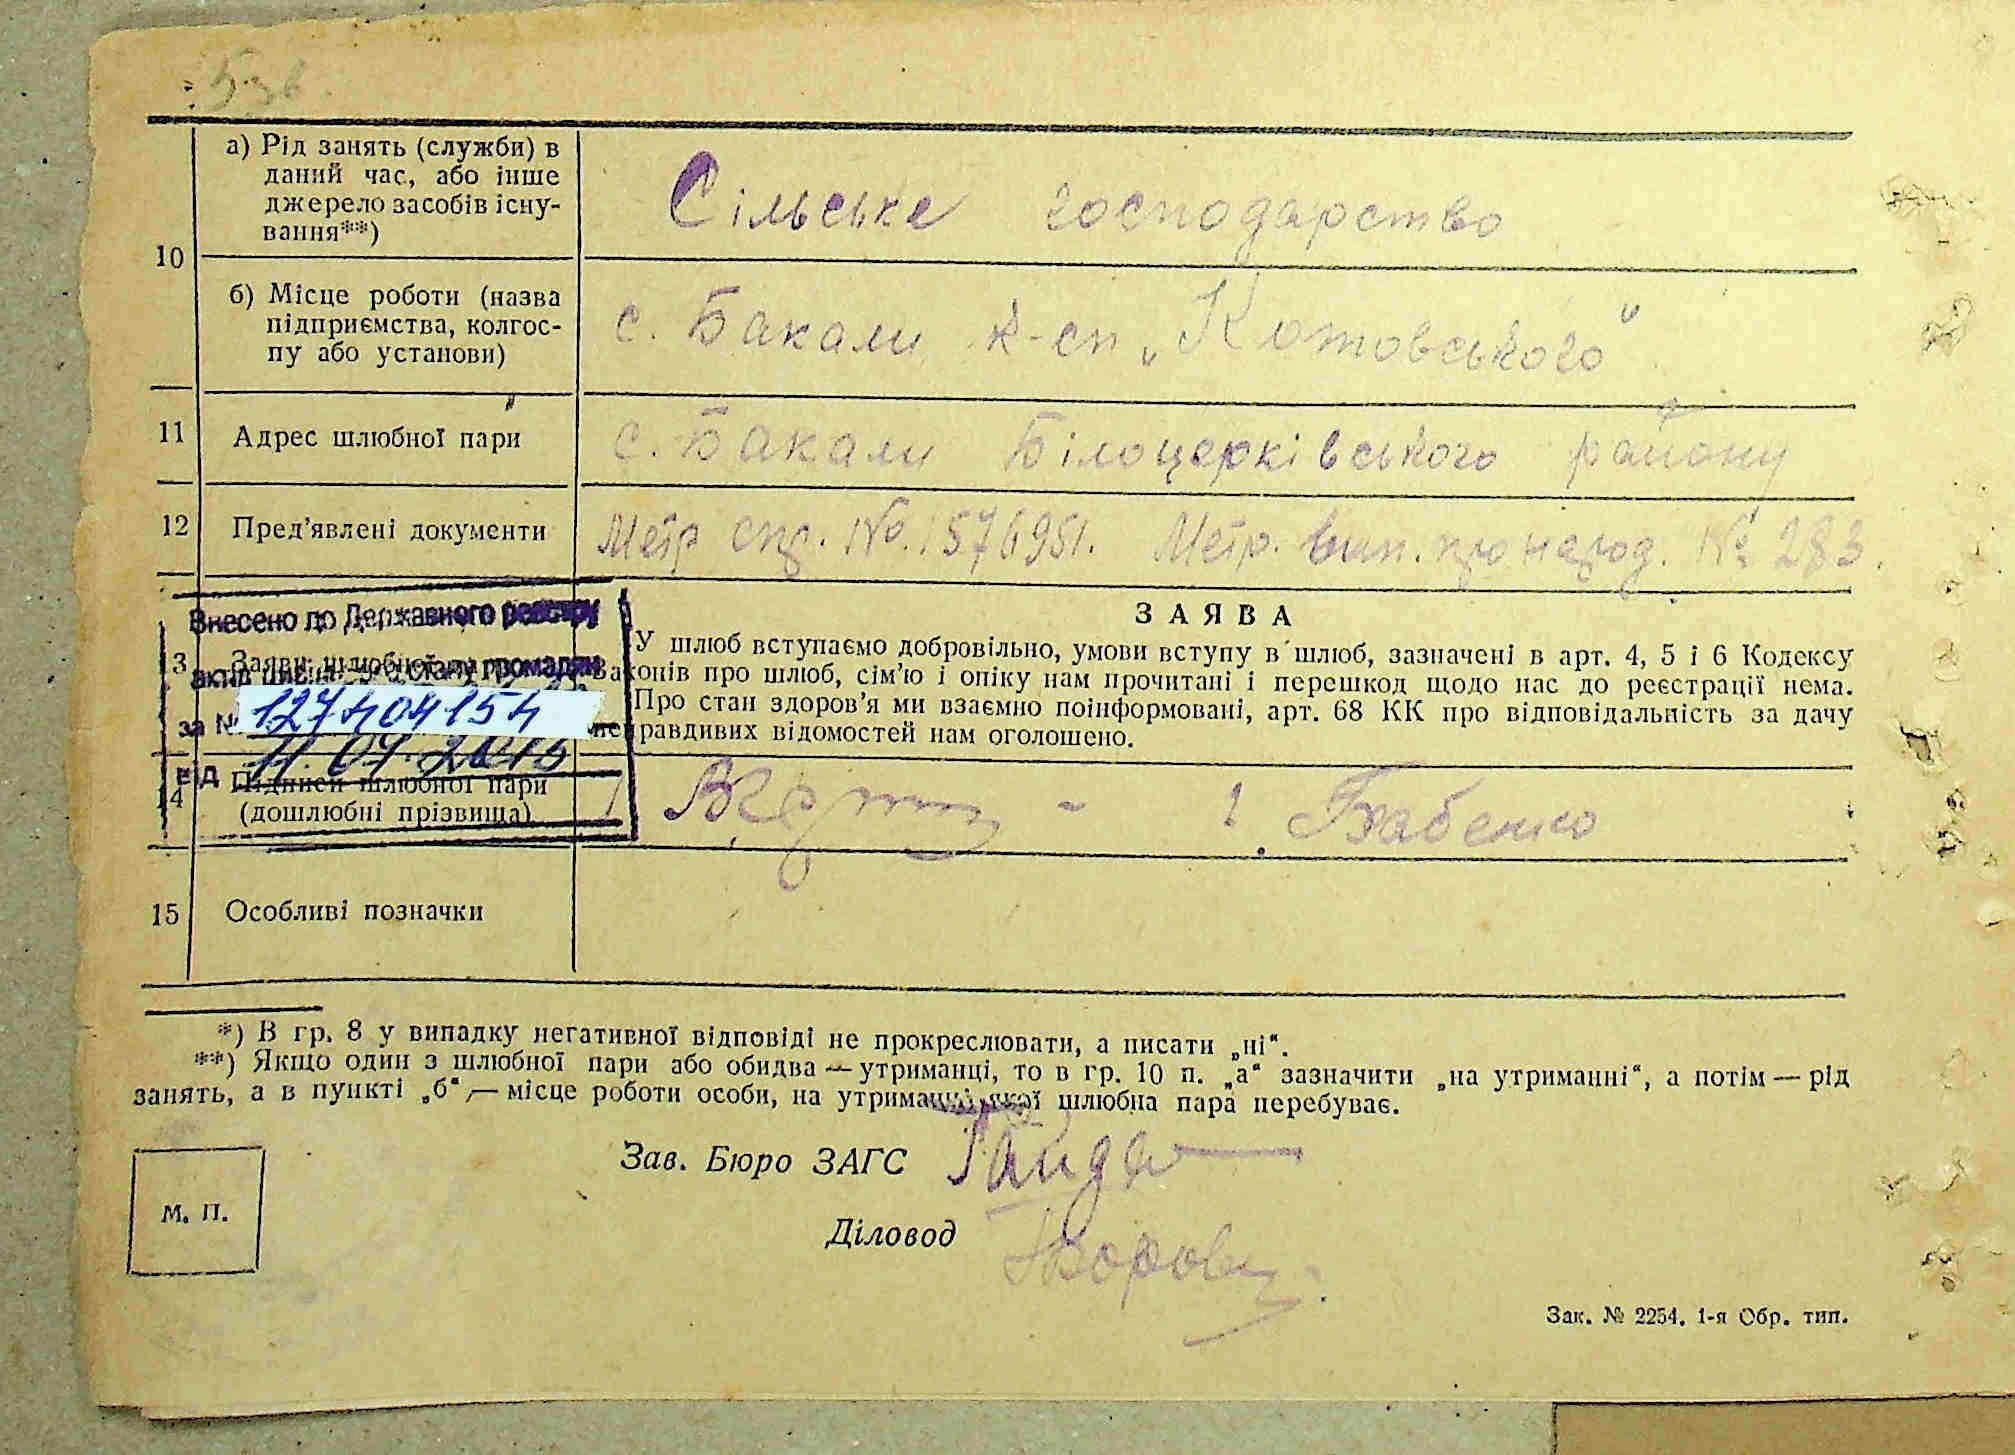 5зв
10
а) Рід занять (служби) в
даний час, або інше
джерело засобів існу-
вання**)
Сільське господарство
б) Місце роботи (назва
підприємства, колгос-
пу або установи)
с. Бакали к-сп „Котовського"
11
Адрес шлюбної пари
с. Бакали Білоцерківського району
12
Пред'явлені документи
Метр спр. №.1576951. Метр. вип. про народ. № 283.
Внесено до Державного реєстру
актів цивільного стану громадян
за № 127404154
від 11.07.
13
Заява шлюбної пари
ЗАЯВА
У шлюб вступаємо добровільно, умови вступу в шлюб, зазначені в арт. 4, 5 і 6 Кодексу
Законів про шлюб, сім'ю і опіку нам прочитані і перешкод щодо нас до реєстрації нема.
Про стан здоров'я ми взаємно поінформовані, арт. 68 КК про відповідальність за дачу
неправдивих відомостей нам оголошено.
14
Підписи шлюбної пари
(дошлюбні прізвища)
Бабенко
15
Особливі позначки
*) В гр. 8 у випадку негативної відповіді не прокреслювати, а писати „ні".
**) Якщо один з шлюбної пари або обидва — утриманці, то в гр. 10 п. „а" зазначити „на утриманні", а потім — рід
занять, а в пункті „б" — місце роботи особи, на утриманні якої шлюбна пара перебуває.
Зав. Бюро ЗАГС
Діловод
М. П.
Зак. № 2254. 1-я Обр. тип.